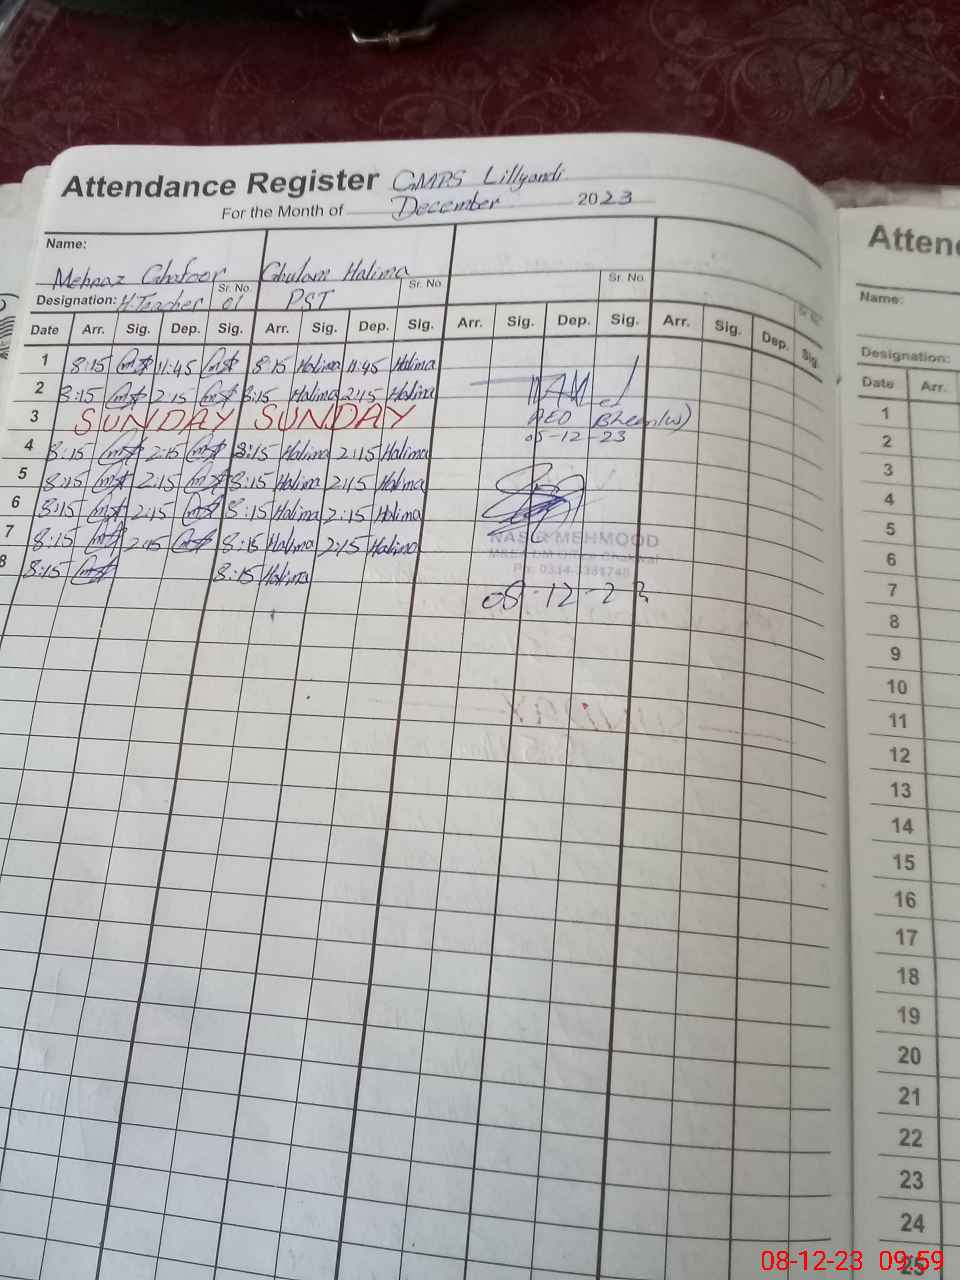 Attendance Register GMPS Lillyandi
For the Month of December 2023
Name:
Mehnaz Ghafoor Ghulam Halima
Designation: H.Teacher Sr. No. 01 PST Sr. No. Sr. No. Sr. No.
Date Arr. Sig. Dep. Sig. Arr. Sig. Dep. Sig. Arr. Sig. Dep. Sig. Arr. Sig. Dep. Sig.
1 8:15 11:45 8:15 Halima 11:45 Halima
2 8:15 2:15 8:15 Halima 2:15 Halima
3 SUNDAY SUNDAY
AEO Bheen(w)
05-12-23
4 8:15 2:15 8:15 Halima 2:15 Halima
5 8:15 2:15 8:15 Halima 2:15 Halima
6 8:15 2:15 8:15 Halima 2:15 Halima
7 8:15 2:15 8:15 Halima 2:15 Halima
8 8:15 8:15 Halima
NASIR MEHMOOD
08-12-23
Atten
Name:
Designation:
Date Arr.
1
2
3
4
5
6
7
8
9
10
11
12
13
14
15
16
17
18
19
20
21
22
23
24
25
08-12-23 09:59